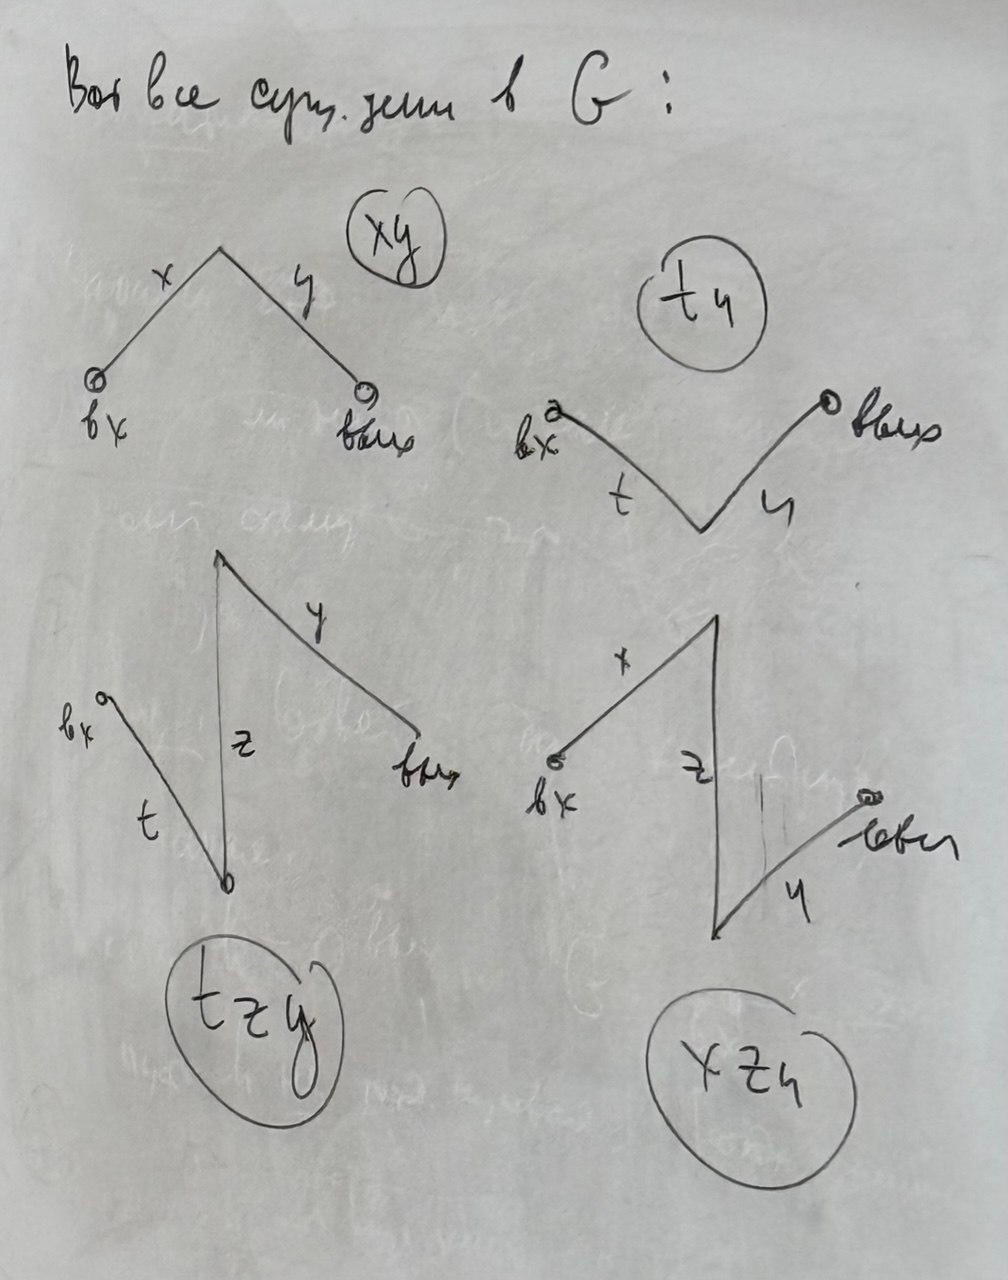 Вот все сущ. цепи в G :
xy
x
y
вх
вых
tч
вх
вых
t
ч
y
вх
z
вых
t
x
z
вх
ч
tzy
xzч